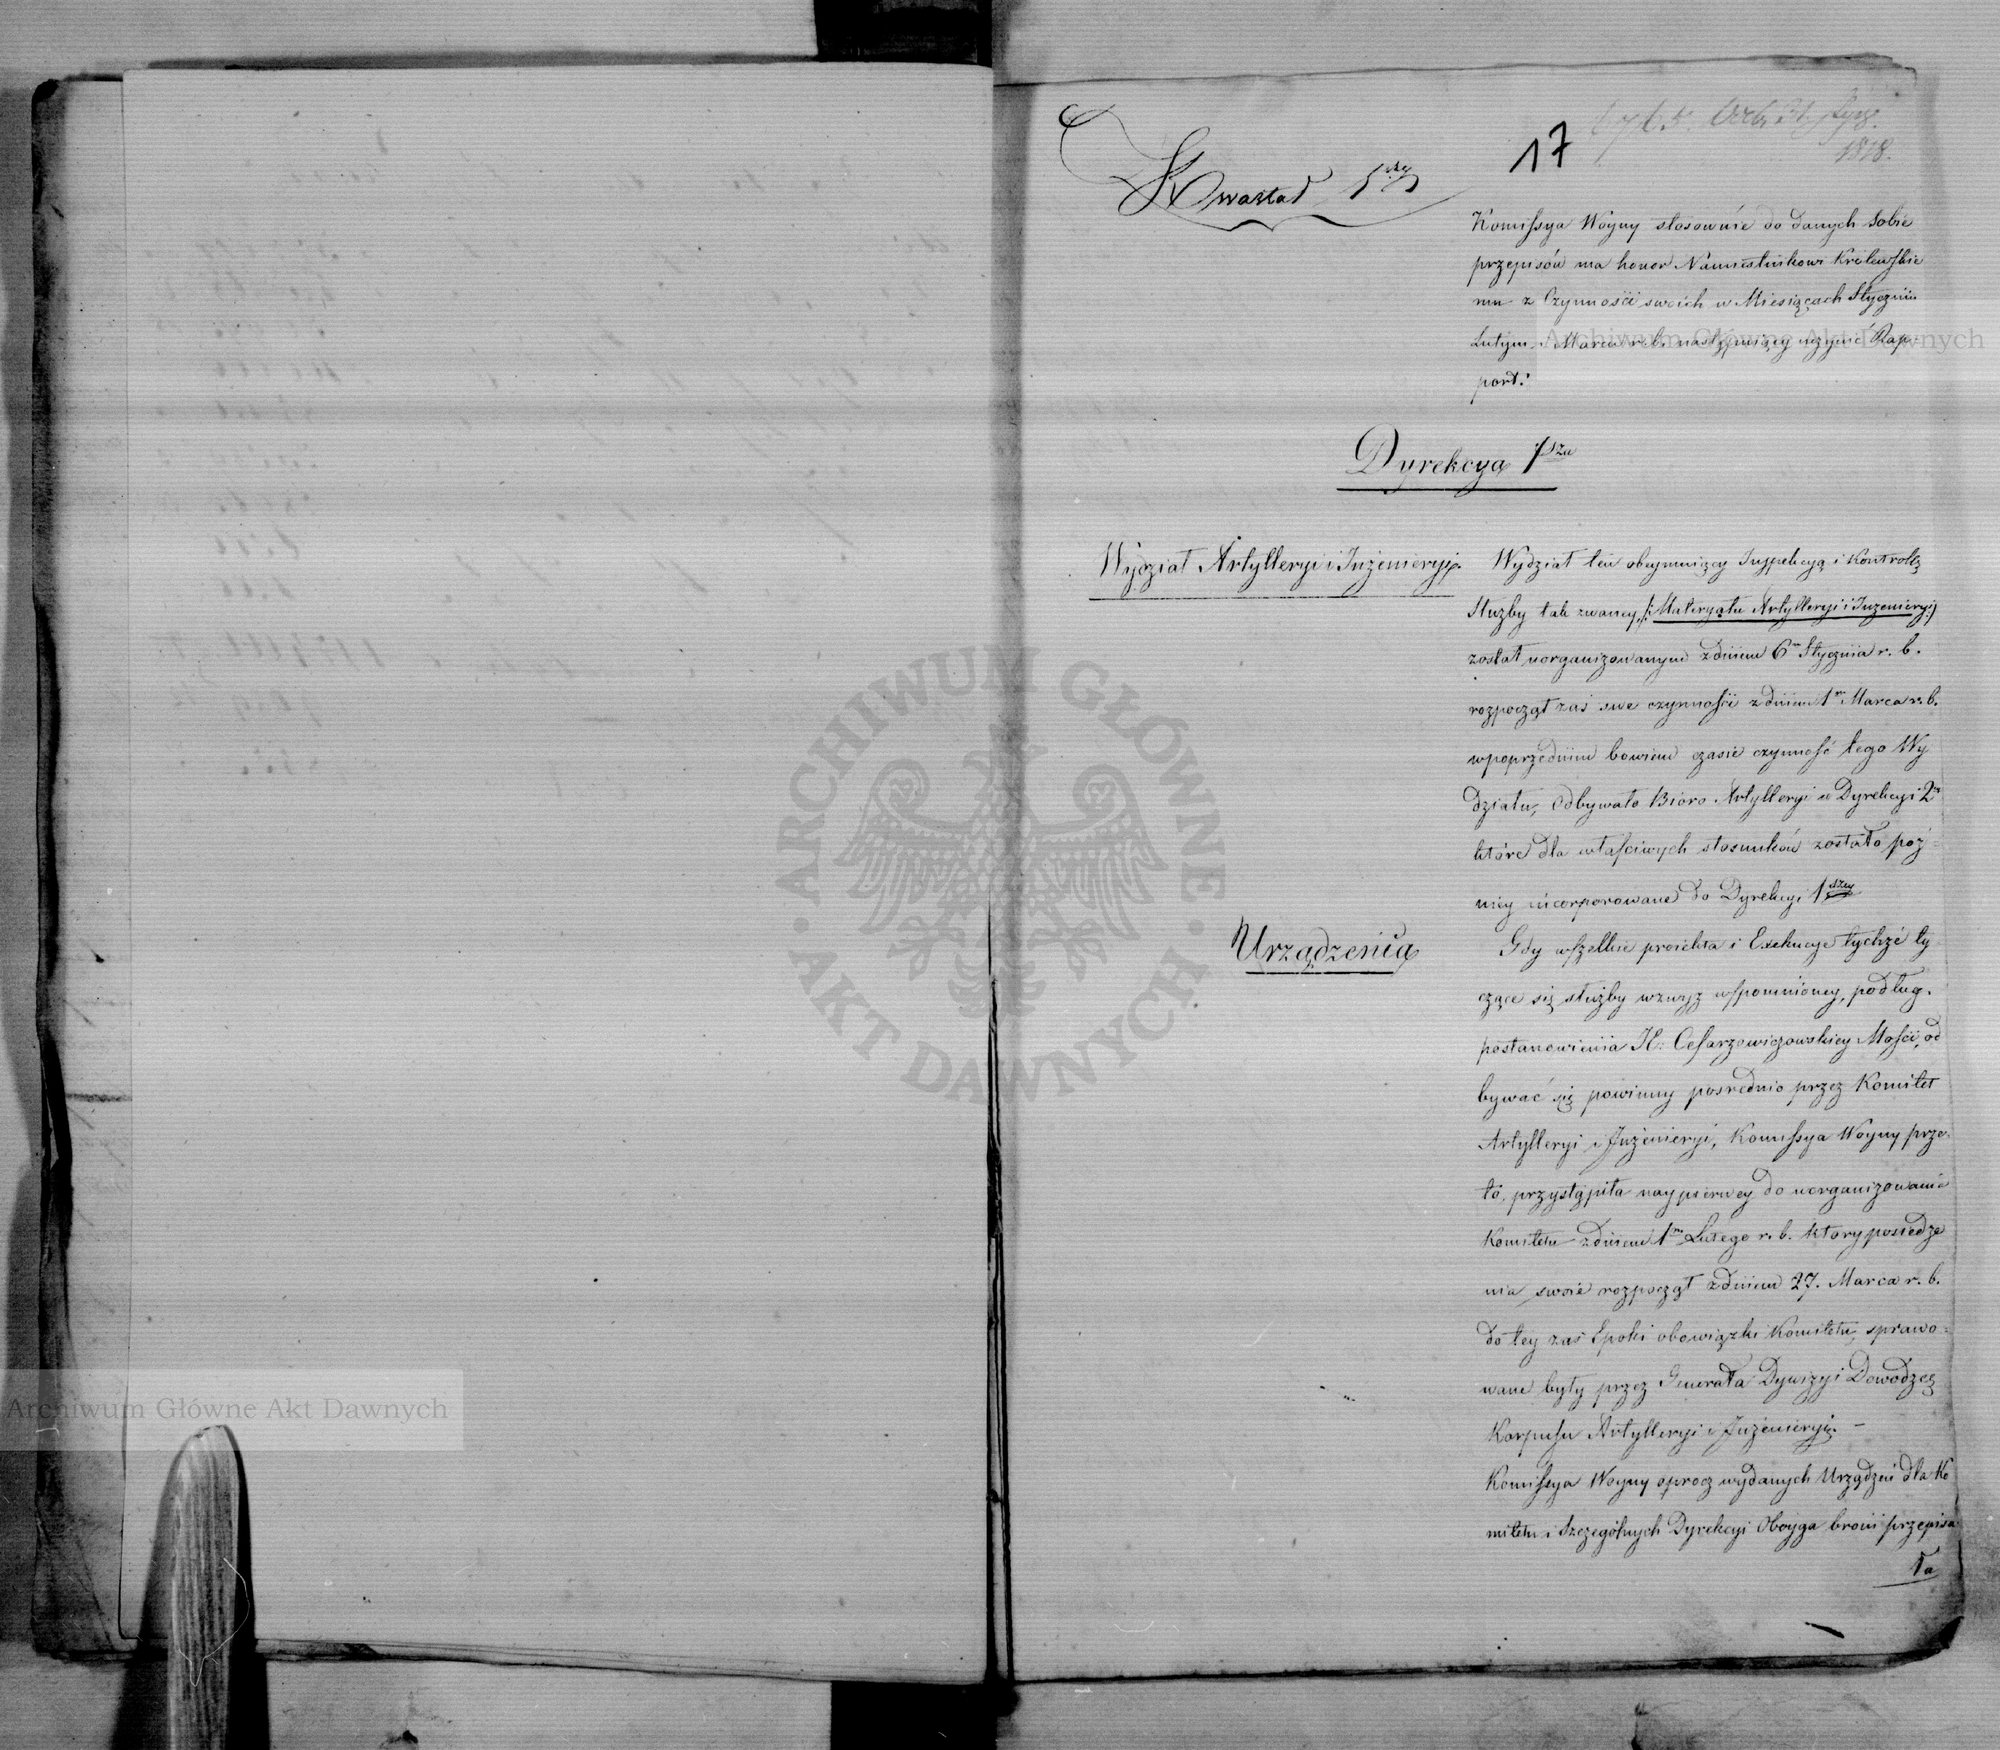 17
1818.
Kwartał 1szy
Komissya Woyny stosownie do danych sobie
przepisów ma honor Namiestnikowi Królewskie
mu z Czynności swoich w Miesiącach Styczniu
Lutym i Marcu r. b. następuiący uczynić Rap-
port:
Dyrekcya 1sza
Wydział Artylleryi i Inżenieryi.
Wydział ten obeymuiący Inspekcyą i Kontrollę
Służby tak zwaney /: Materyału Artylleryi i Inżenieryi :/
został uorganizowanym z dniem 6m Stycznia r. b.
rozpoczął zaś swe czynności z dniem 1m Marca r. b.
w poprzednim bowiem czasie czynność tego Wy
działu, odbywało Bióro Artylleryi w Dyrekcyi 2ey
które dla właściwych stosunków zostało póź-
niey incorporowane do Dyrekcyi 1szey
Urządzenia
Gdy wszelkie proiekta i Exekucye tychże ty
czące się służby wzwyż wspomnioney, podług
postanowienia J. Cesarzewiczowskiey Mości, od
bywać się powinny pośrednio przez Komitet
Artylleryi i Inżenieryi, Komissya Woyny prze-
to, przystąpiła naypierwey do uorganizowania
Komitetu z dniem 1m Lutego r. b. który posiedze
nia swoie rozpoczął z dniem 27. Marca r. b.
do tey zaś Epoki obowiązki Komitetu, sprawo-
wane były przez Generała Dywizyi Dowódzcę
Korpusu Artylleryi i Inżenieryi. –
Komissya Woyny oprócz wydanych Urządzeń dla Ko
mitetu i Szczególnych Dyrekcyi Oboyga broni przepisa
ła
Archiwum Główne Akt Dawnych
ARCHIWUM GŁÓWNE AKT DAWNYCH
Archiwum Główne Akt Dawnych